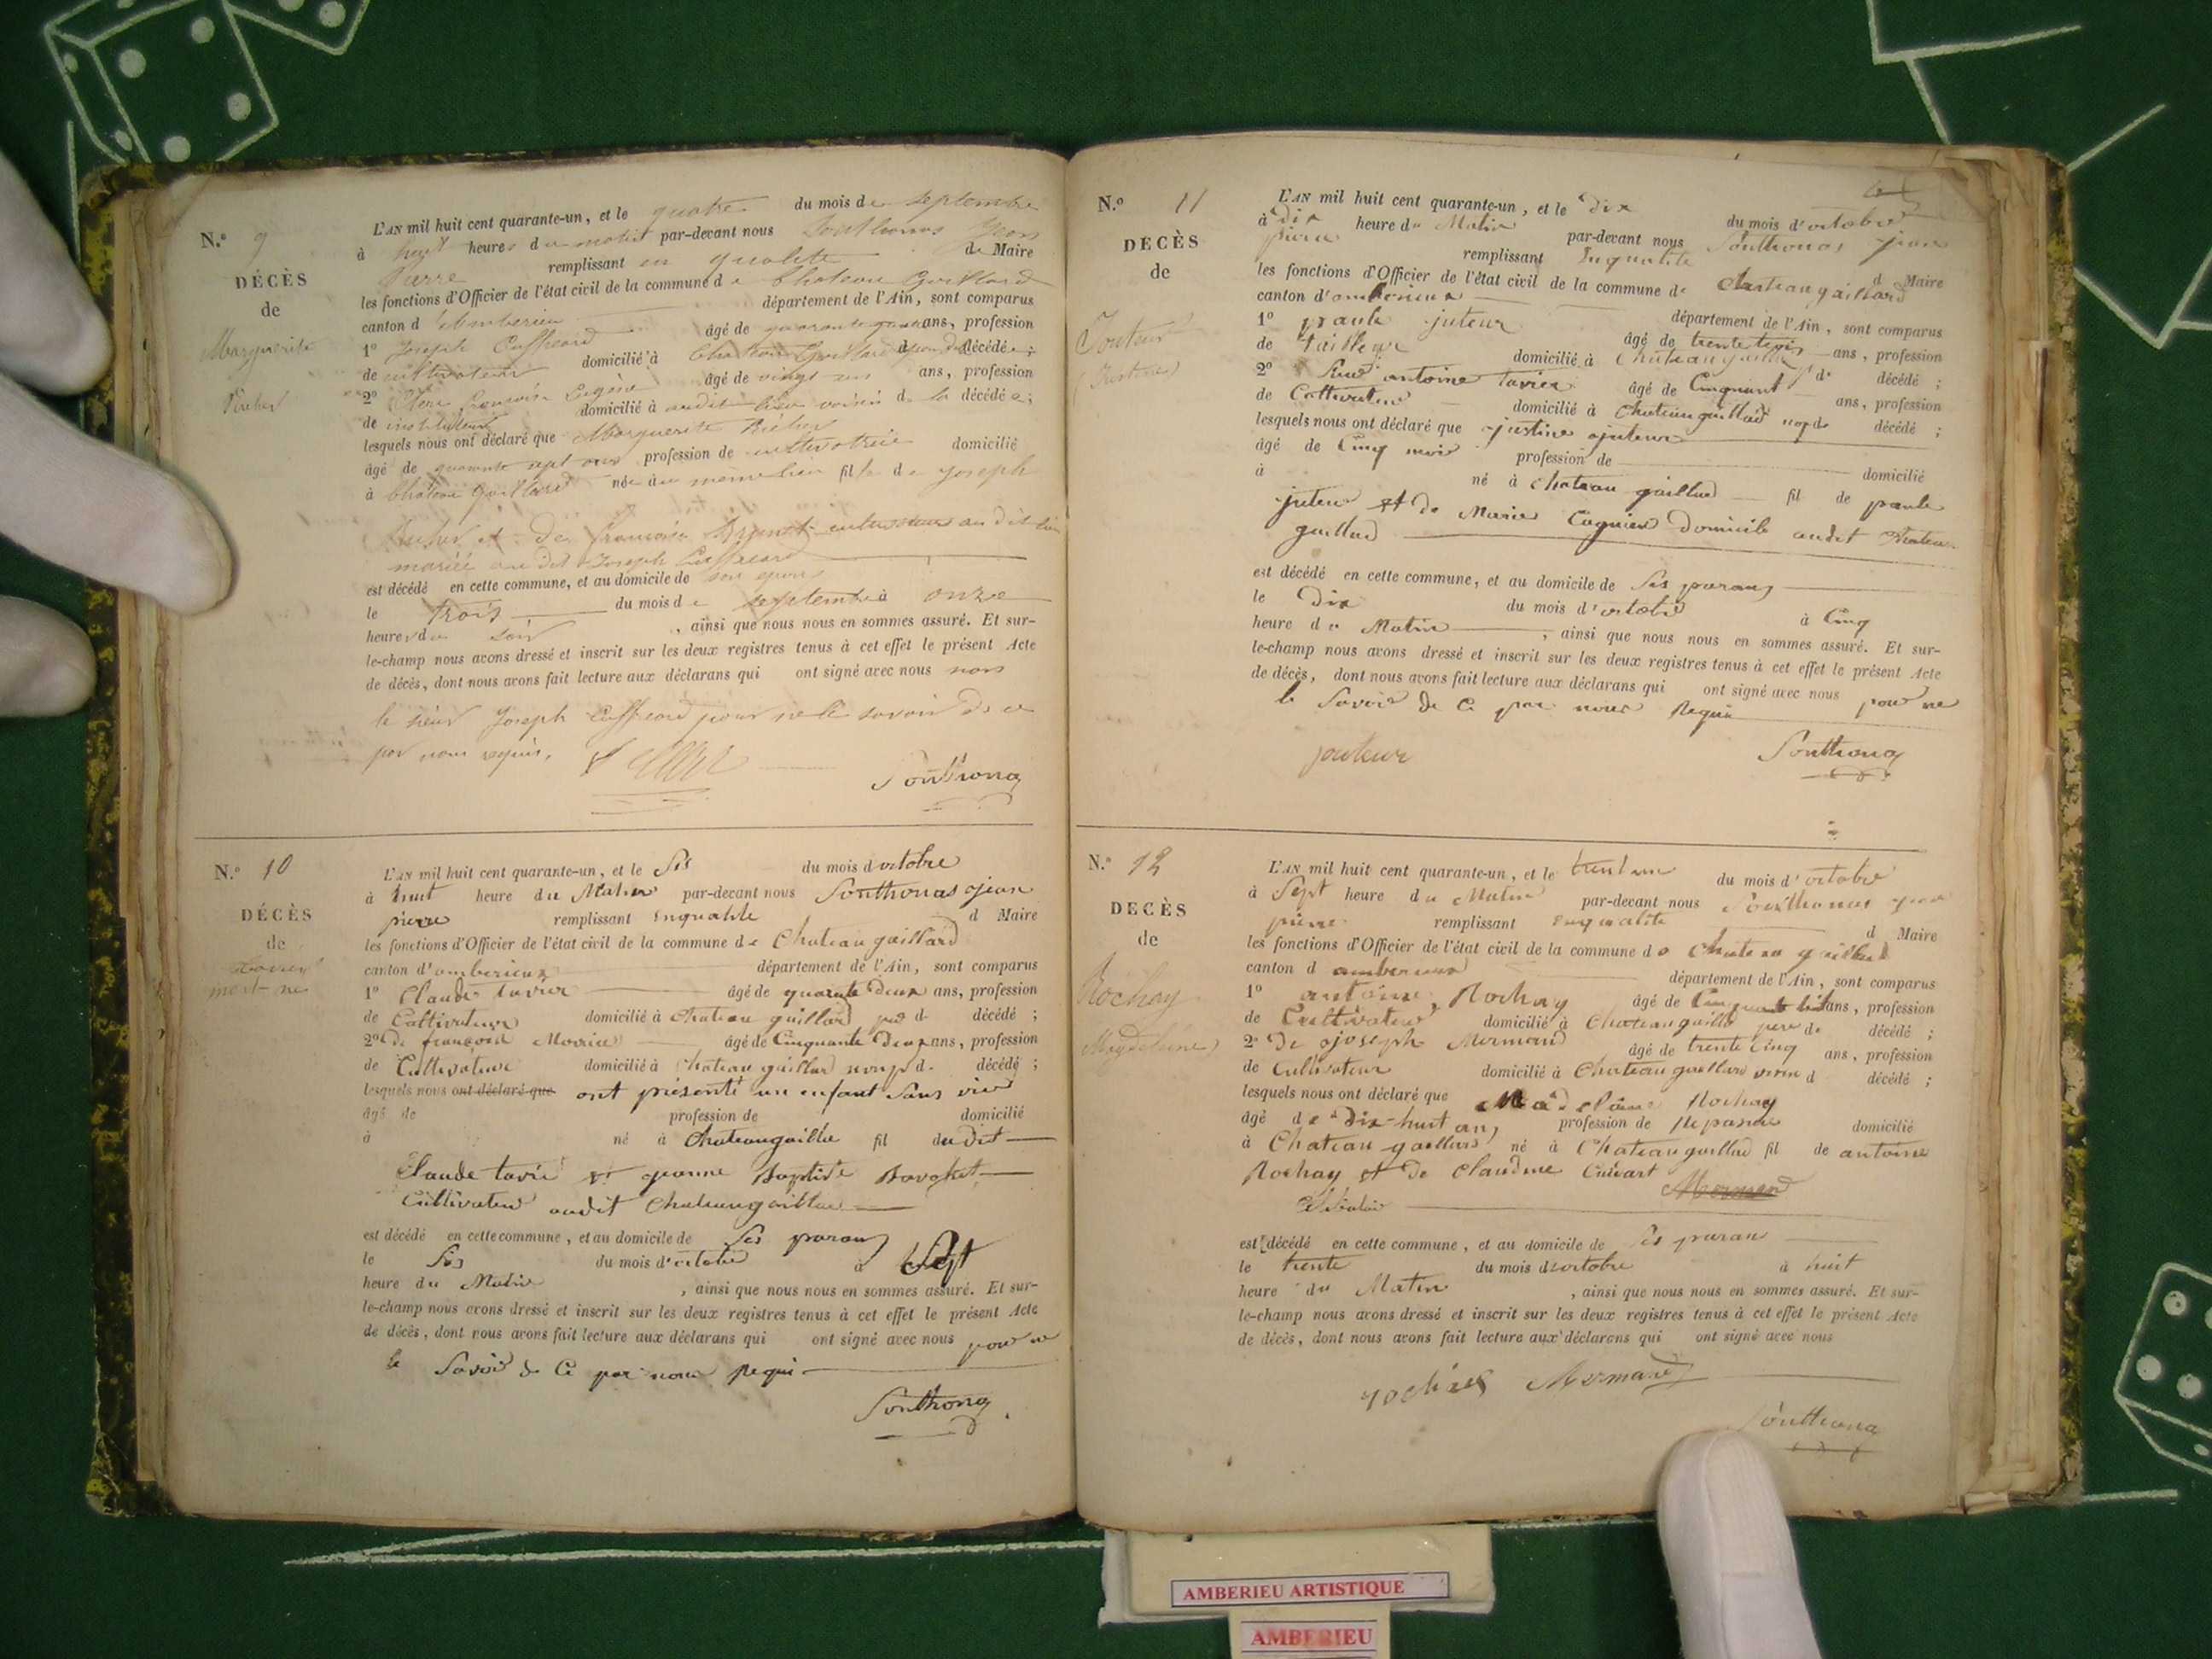 N.º 9
DÉCÈS
de
Marguerite
L'AN mil huit cent quarante-un, et le quatre du mois de septembre
à huit heures du matin par-devant nous Sonthonas Jean
Pierre remplissant en qualité de Maire
les fonctions d'Officier de l'état civil de la commune de Chateau Gaillard
canton d'Amberieu département de l'Ain, sont comparus
1º Joseph âgé de quarante ans, profession
de cultivateur domicilié à Chateau Gaillard époux de la décédée;
2º François âgé de vingt ans, profession
de instituteur domicilié à audit lieu voisin de la décédée;
lesquels nous ont déclaré que Marguerite
âgé de quarante sept ans profession de cultivatrice domicilié
à Chateau Gaillard née au même lieu fille de Joseph
et de cultivateurs au dit lieu
mariée au dit Joseph
est décédé en cette commune, et au domicile de son époux
le trois du mois de septembre à onze
heures du soir, ainsi que nous nous en sommes assuré. Et sur-
le-champ nous avons dressé et inscrit sur les deux registres tenus à cet effet le présent Acte
de décès, dont nous avons fait lecture aux déclarans qui ont signé avec nous non
le sieur Joseph pour ne le savoir de ce
par nous requis.
Sonthona
N.º 10
DÉCÈS
de
mort né
L'AN mil huit cent quarante-un, et le Sis du mois d'octobre
à huit heure du Matin par-devant nous Sonthonas jean
pierre remplissant enqualité d Maire
les fonctions d'Officier de l'état civil de la commune de Chateau gaillard
canton d'amberieux département de l'Ain, sont comparus
1º Claude tavier âgé de quarante deux ans, profession
de Cultivateur domicilié à Chateau gaillard d décédé;
2º de françois Morice âgé de Cinquante deux ans, profession
de Cultivateur domicilié à Chateau gaillard d décédé;
lesquels nous ont déclaré que ont présenté un enfant sans vie
âgé de profession de domicilié
à né à Chateaugaillar fil du dit
Claude tavié et jeanne Baptiste
Cultivateur audit Chateaugaillar
est décédé en cette commune, et au domicile de ses paran
le Sis du mois d'octobre à Sept
heure du Matin, ainsi que nous nous en sommes assuré. Et sur-
le-champ nous avons dressé et inscrit sur les deux registres tenus à cet effet le présent Acte
de décès, dont nous avons fait lecture aux déclarans qui ont signé avec nous pour ne
le Savoir de Ce par nous Requi
Sonthona
N.º 11
DÉCÈS
de
Jouteur
(Justine)
L'AN mil huit cent quarante-un, et le Dix du mois d'octobre
à Dix heure du Matin par-devant nous Sonthonas jean
pierre remplissant Enqualité d Maire
les fonctions d'Officier de l'état civil de la commune de Chateau gaillard
canton d'amberieux département de l'Ain, sont comparus
1º paule juteur âgé de trente ans, profession
de tailleur domicilié à Chateaugaillar d décédé;
2º antoine tavier âgé de Cinquant ans, profession
de Cultivateur domicilié à Chateaugaillard d décédé;
lesquels nous ont déclaré que justine juteur
âgé de Cinq mois profession de domicilié
à né à Chateau gaillard fil de paule
juteur et de Marie Cognier Domicile audit Chateau
gaillard
est décédé en cette commune, et au domicile de Ses parans
le Dix du mois d'octobre à Cinq
heure du Matin, ainsi que nous nous en sommes assuré. Et sur-
le-champ nous avons dressé et inscrit sur les deux registres tenus à cet effet le présent Acte
de décès, dont nous avons fait lecture aux déclarans qui ont signé avec nous pour ne
le Savoir de Ce par nous Requi
juteur Sonthona
N.º 12
DÉCÈS
de
Rochay
Magdeleine
L'AN mil huit cent quarante-un, et le trentun du mois d'octobre
à Sept heure du Matin par-devant nous Sonthonas jean
pierre remplissant enqualité d Maire
les fonctions d'Officier de l'état civil de la commune de Chateau gaillard
canton d amberieux département de l'Ain, sont comparus
1º antoine Rochay âgé de Cinquante ans, profession
de Cultivateur domicilié à Chateaugaillar pere de décédé;
2º De joseph Mermand âgé de trente Cinq ans, profession
de Cultivateur domicilié à Chateau gaillard voisin d décédé;
lesquels nous ont déclaré que Madelaine Rochay
âgé de Dix-huit ans profession de domicilié
à Chateau gaillard né à Chateau gaillard fil de antoine
Rochay et de Claudine
Mermand
est décédé en cette commune, et au domicile de ses paran
le trente du mois d'octobre à huit
heure du Matin, ainsi que nous nous en sommes assuré. Et sur-
le-champ nous avons dressé et inscrit sur les deux registres tenus à cet effet le présent Acte
de décès, dont nous avons fait lecture aux déclarans qui ont signé avec nous
Mermand
Sonthona
AMBERIEU ARTISTIQUE
AMBERIEU